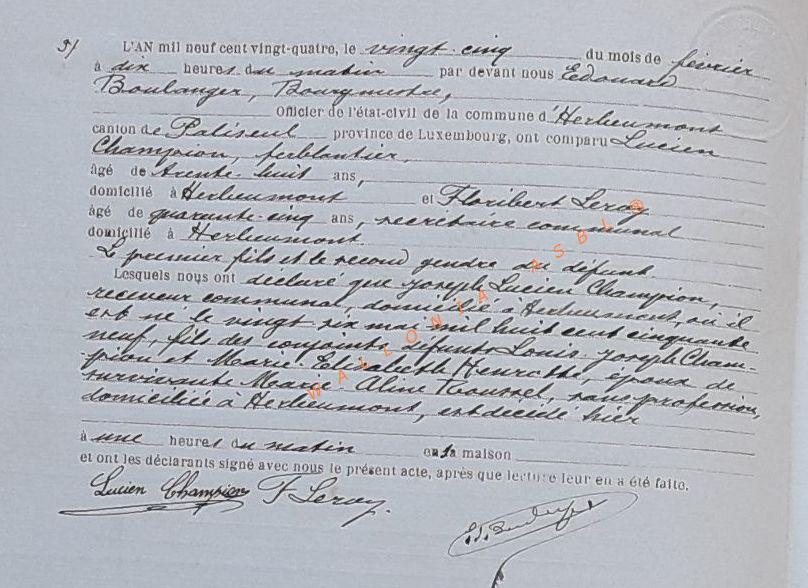 9/ L'AN mil neuf cent vingt-quatre, le vingt-cinq du mois de février
à dix heures du matin par devant nous Edouard
Boulanger, Bourgmestre,
Officier de l'état-civil de la commune d'Herbeumont
canton de Paliseul province de Luxembourg, ont comparu Lucien
Champion, ferblantier,
âgé de trente-huit ans,
domicilié à Herbeumont et Floribert Leroy
âgé de quarante-cinq ans, secrétaire communal
domicilié à Herbeumont
Le premier fils et le second gendre du défunt
Lesquels nous ont déclaré que Joseph Lucien Champion,
receveur communal, domicilié à Herbeumont, où il
est né le vingt six mai mil huit cent cinquante
neuf, fils des conjoints défunts Louis Joseph Cham-
pion et Marie-Elisabeth Henrotte, époux de
survivante Marie-Aline Roussel, sans profession,
domiciliée à Herbeumont, est décédé hier
à une heures du matin en sa maison
et ont les déclarants signé avec nous le présent acte, après que lecture leur en a été faite.
Lucien Champion F Leroy.
WALLONIA ASBL ©